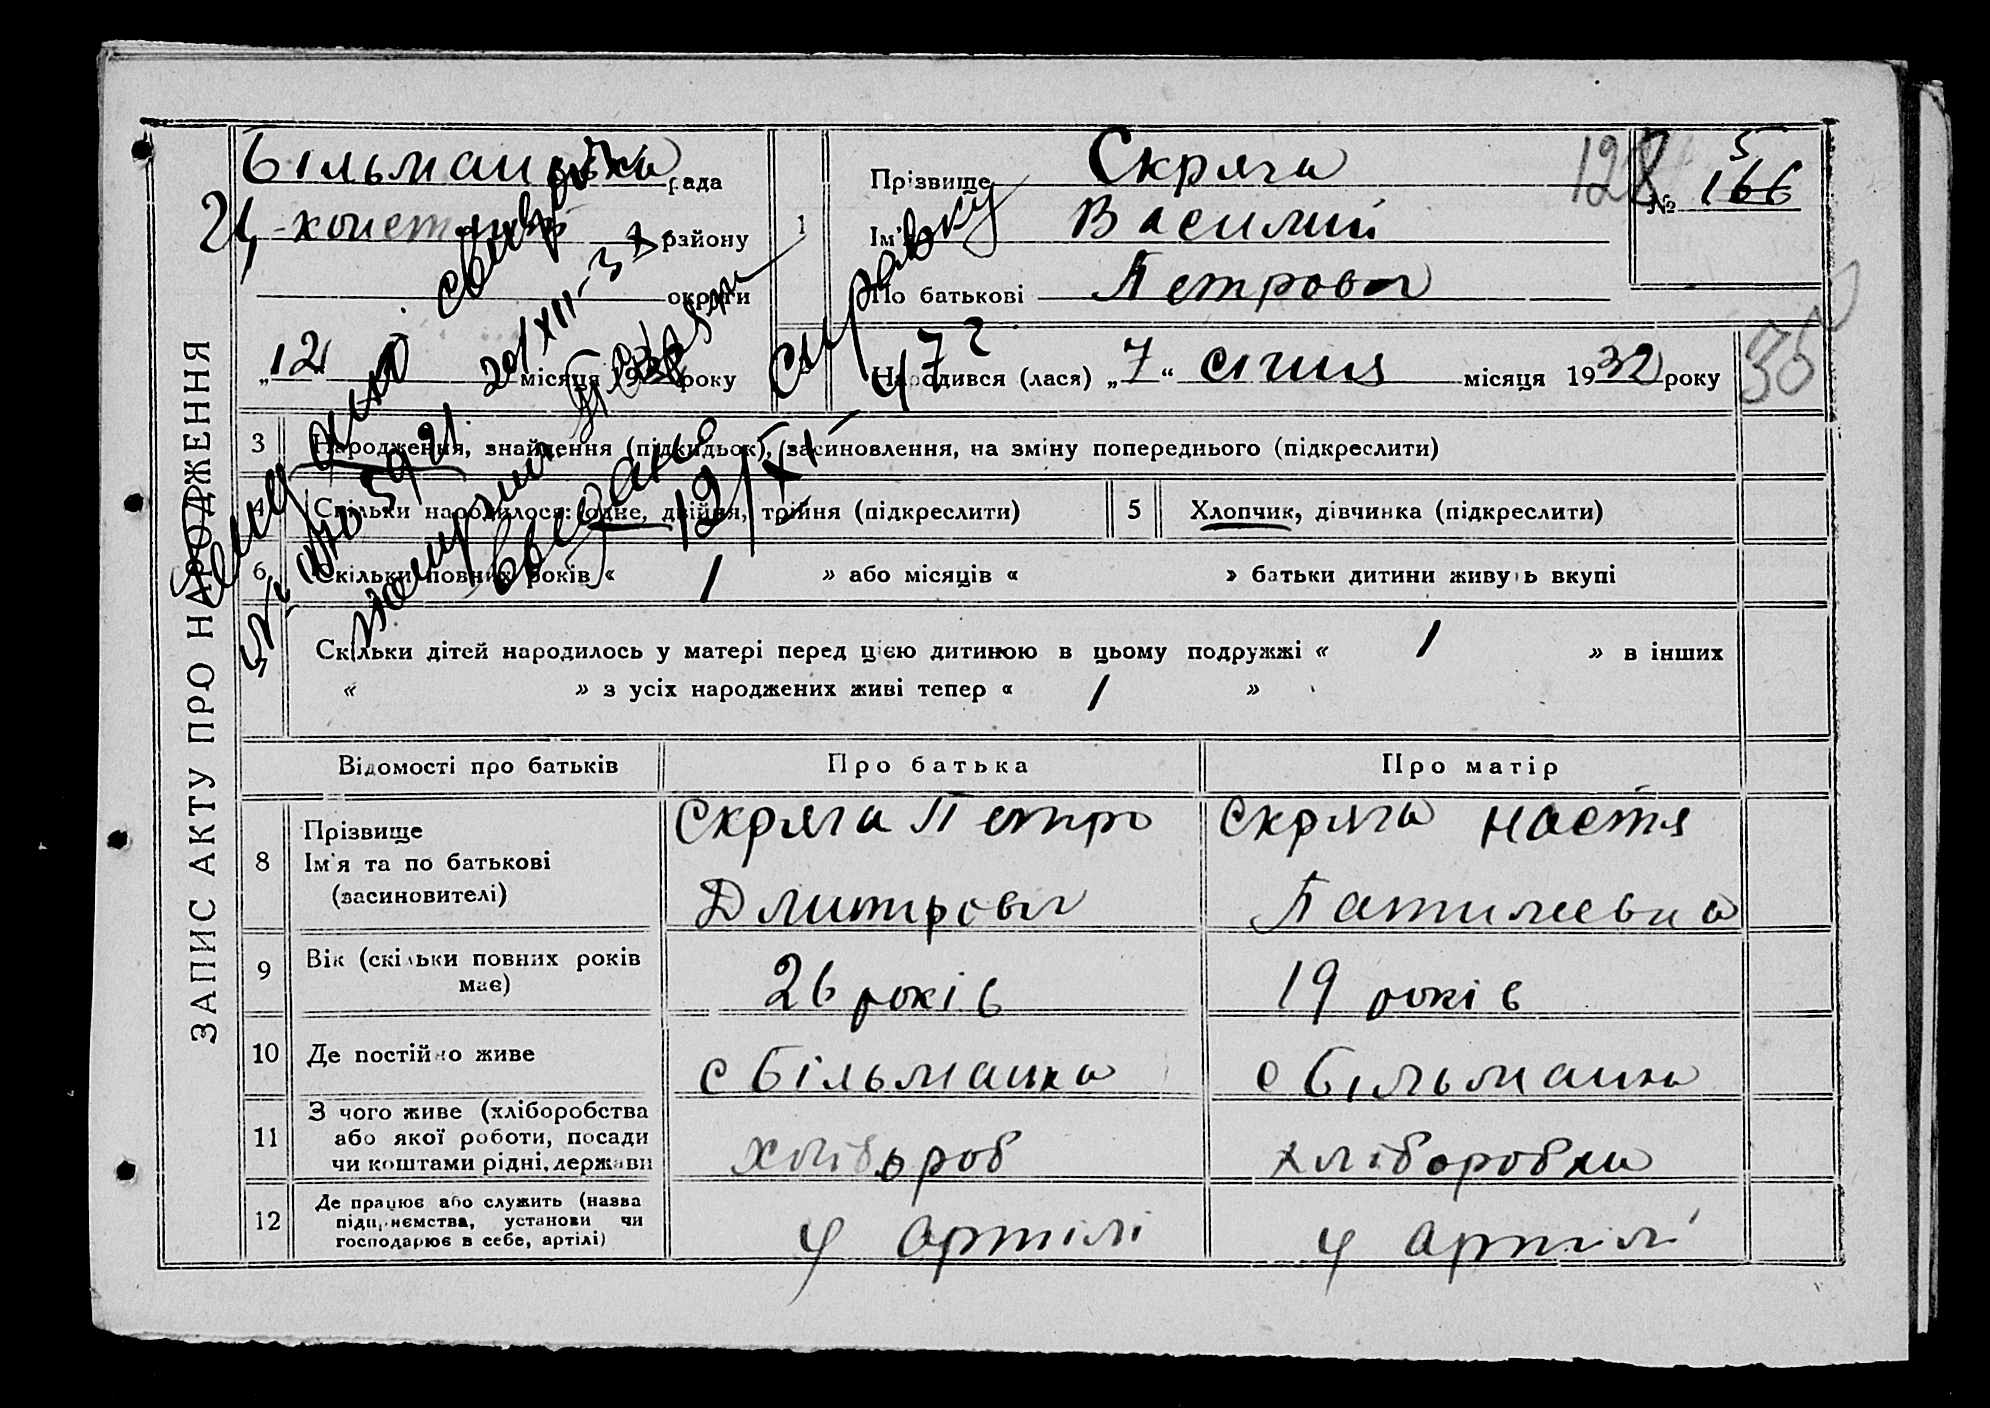 ЗАПИС АКТУ ПРО НАРОДЖЕННЯ
Більманська рада
району
округи
„12“ місяця року
1
Прізвище Скряга
Ім'я Василий
По батькові Петрович
128
№ 166
5
Народився (лася) „7“ січня місяця 1932 року
47 г
справку
выдано
19/XI
20/XII-3
3 Народження, знайдення (підкидьок), засиновлення, на зміну попереднього (підкреслити)
4 Скільки народилося: одне, двійня, трійня (підкреслити)
5 Хлопчик, дівчинка (підкреслити)
6 Скільки повних років « 1 » або місяців « » батьки дитини живуть вкупі
Скільки дітей народилось у матері перед цією дитиною в цьому подружжі « 1 » в інших
« » з усіх народжених живі тепер « 1 »
Відомості про батьків Про батька Про матір
8 Прізвище Ім'я та по батькові (засиновителі)
Скряга Петро Дмитрович
Скряга Настя
9 Вік (скільки повних років має)
26 років
19 років
10 Де постійно живе
с Більманка
с Більманка
11 З чого живе (хліборобства або якої роботи, посади чи коштами рідні, держави
хлібороб
хліборобка
12 Де працює або служить (назва підприємства, установи чи господарює в себе, артілі)
у артілі
у артілі